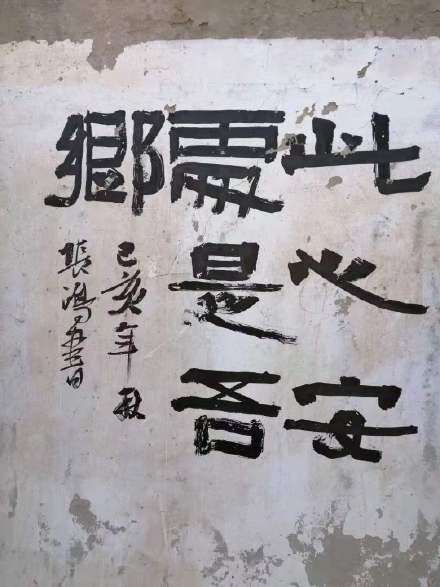 此心安
處是吾
鄉
己亥年
張鴻書